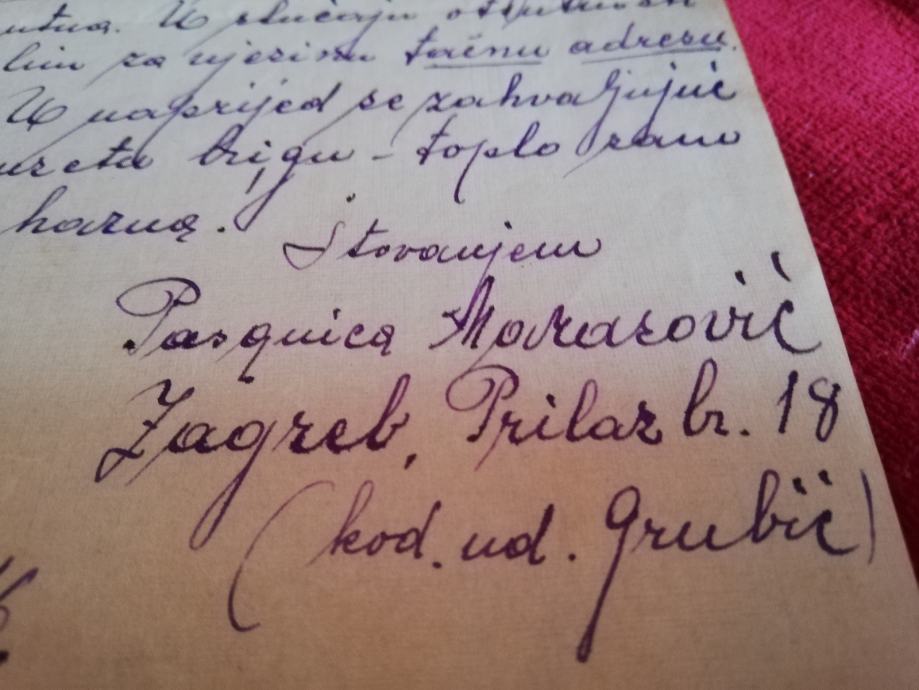 U slučaju
za njezinu tačnu adresu.
U naprijed se zahvaljujuć
brigu - toplo
harna.
Štovanjem
Pasquica Marasović
Zagreb, Prilaz br. 18
(kod. ud. Grubić)